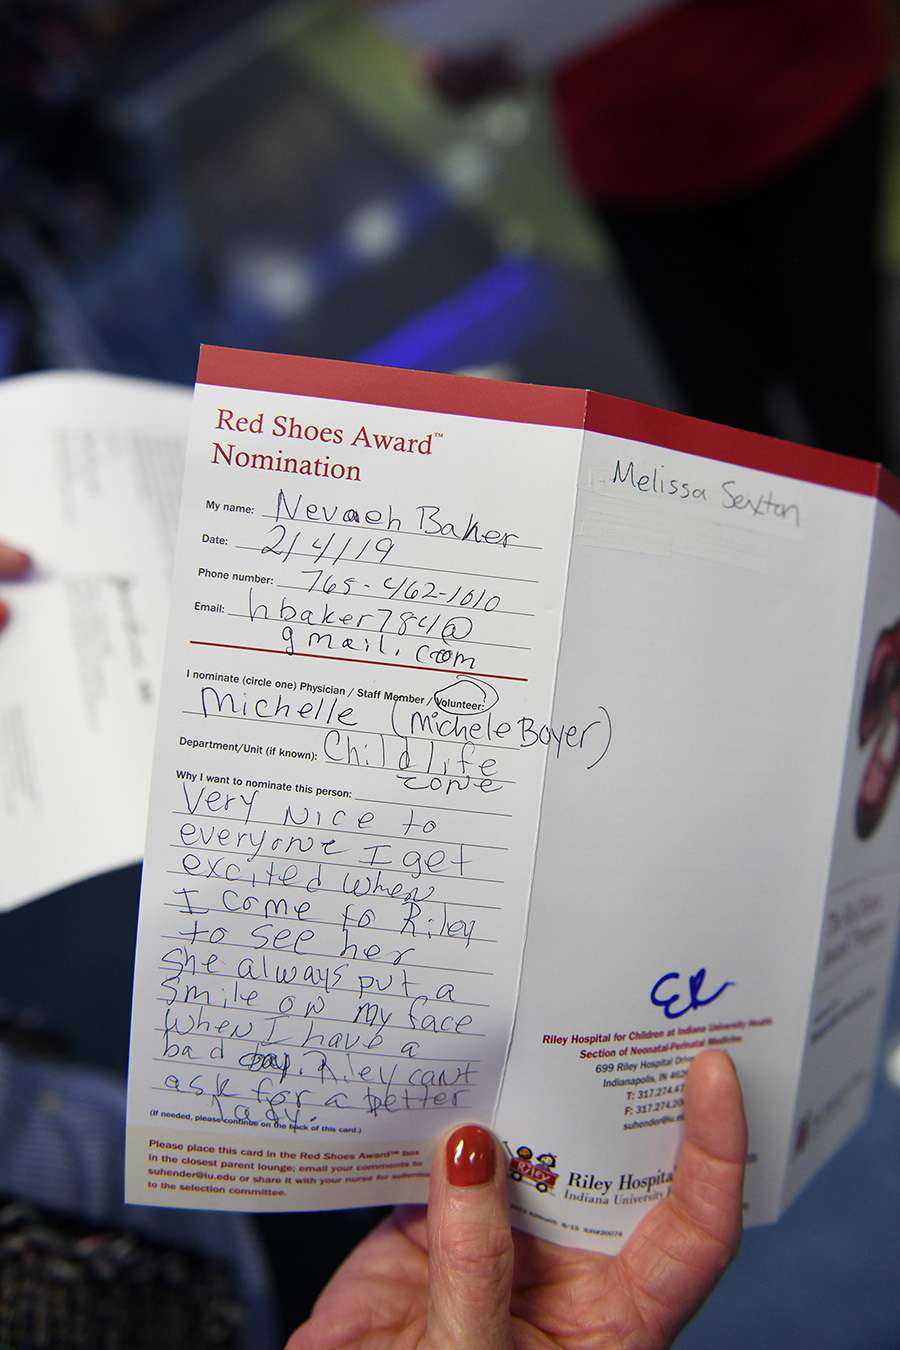 Red Shoes Award™
Nomination
My name: Nevaeh Baker
Date: 2/4/19
Phone number: 765-462-1610
Email: hbaker784@
gmail.com
I nominate (circle one) Physician / Staff Member / Volunteer:
Michelle (Michele Boyer)
Department/Unit (if known): Child life
zone
Why I want to nominate this person:
Very Nice to
everyone I get
excited when
I come to Riley
to see her
She always put a
smile on my face
when I have a
bad day. Riley cant
ask for a better
lady.
(If needed, please continue on the back of this card.)
Please place this card in the Red Shoes Award™ box
in the closest parent lounge; email your comments to
suhender@iu.edu or share it with your nurse for
to the selection committee.
Melissa Sexton
Riley Hospital for Children at Indiana University Health
Section of Neonatal-Perinatal Medicine
699 Riley Hospital
Indianapolis, IN
T: 317.274
F: 317.274
suhender@iu
RILEY
Riley
Indiana University